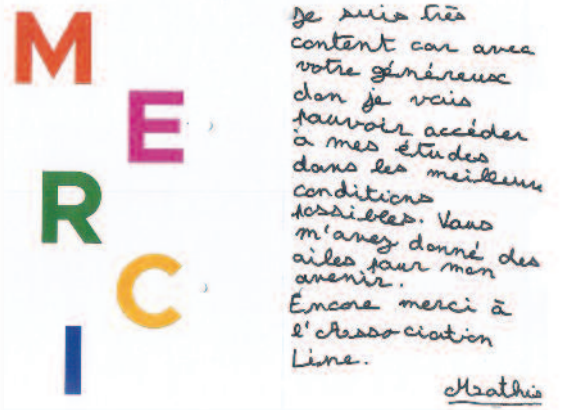 M
E
R
C
I
Je suis très
content car avec
votre généreux
don je vais
pouvoir accéder
à mes études
dans les meilleurs
conditions
possibles. Vous
m'avez donné des
ailes pour mon
avenir.
Encore merci à
l'Association
Line.
Mathis